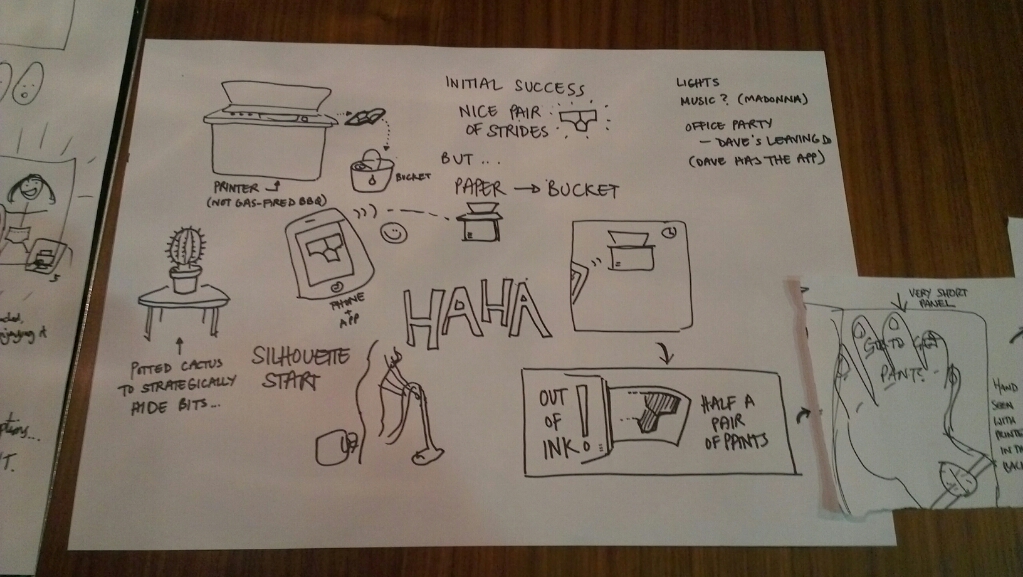 INITIAL SUCCESS
NICE PAIR
OF STRIDES
BUT...
PAPER → BUCKET
LIGHTS
MUSIC? (MADONNA)
OFFICE PARTY
— DAVE'S LEAVING DO
(DAVE HAS THE APP)
PRINTER
(NOT GAS-FIRED BBQ)
BUCKET
PHONE
+
APP
HAHA
POTTED CACTUS
TO STRATEGICALLY
HIDE BITS...
SILHOUETTE
START
OUT
OF
INK!
HALF A
PAIR
OF PANTS
VERY SHORT
PANEL
GOT TO GET
PANTS!
HAND
SEEN
WITH
IN TH
BACK